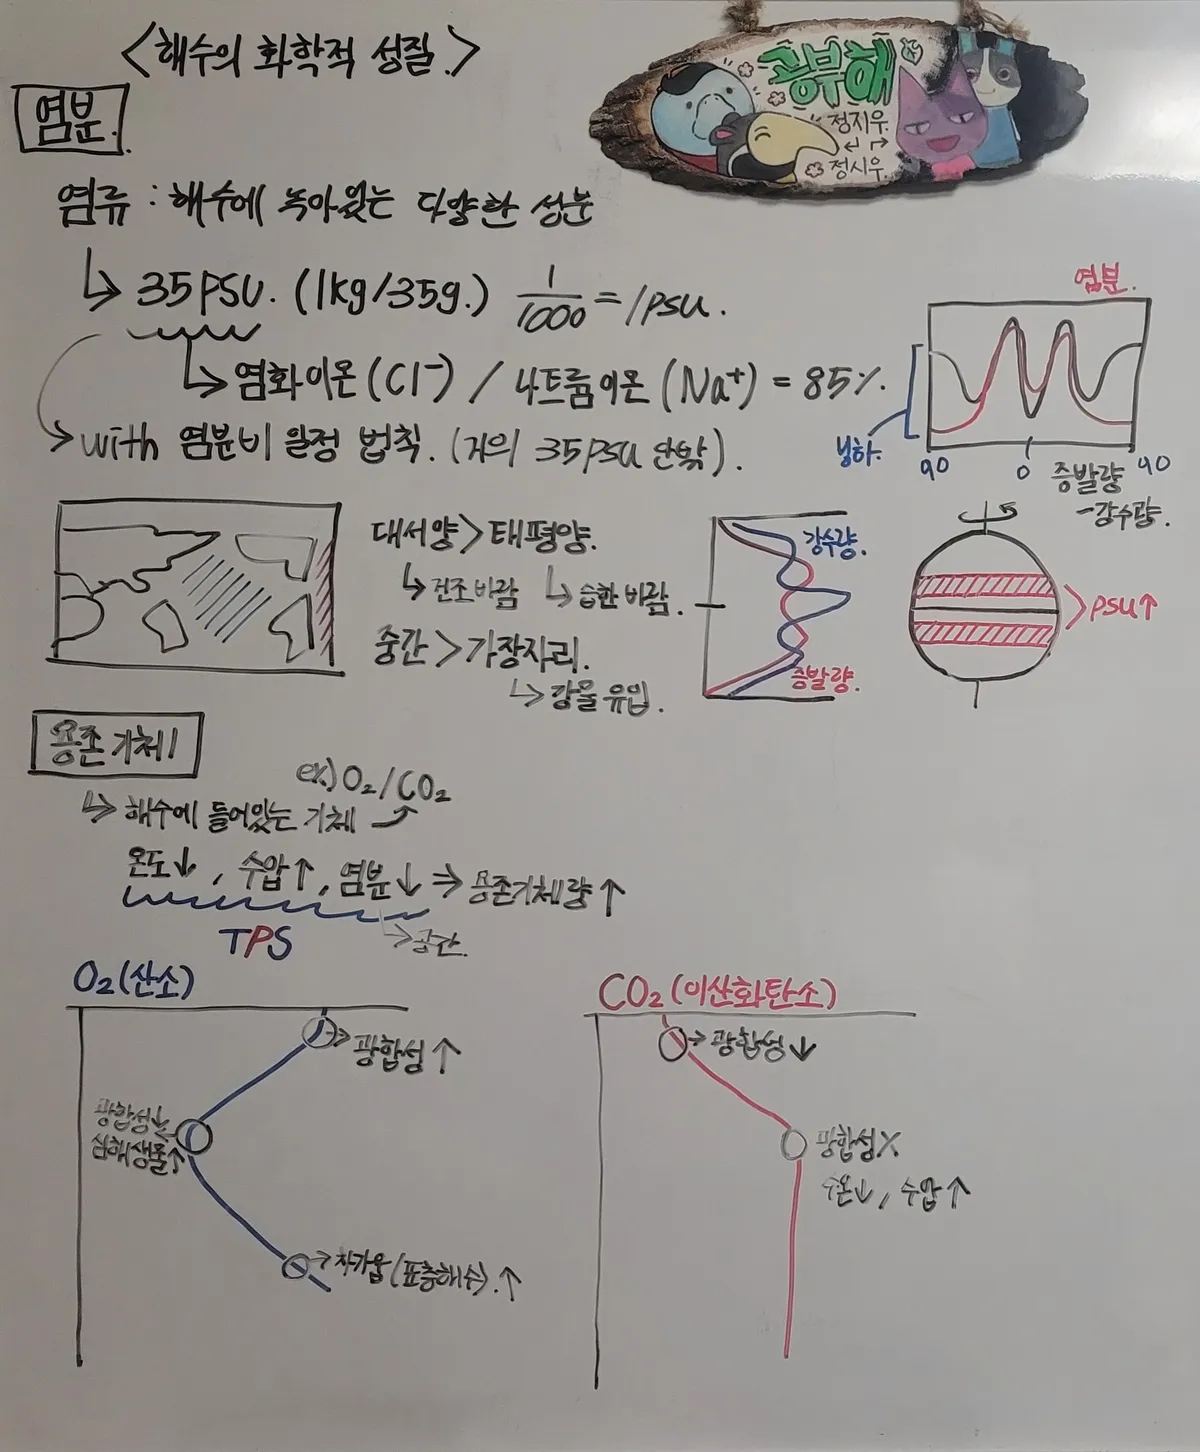 <해수의 화학적 성질.>
공부해
정지우
정시우
염분.
염류 : 해수에 녹아있는 다양한 성분
↳ 35psu. (1kg/35g.) 1/1000 = 1psu.
↳ 염화이온(Cl⁻) / 나트륨이온(Na⁺) = 85%.
→ with 염분비 일정 법칙. (거의 35psu 안밖).
염분.
90 0 90
증발량
-강수량.
대서양 > 태평양.
↳ 건조바람 ↳ 습한 바람.
중간 > 가장자리.
↳ 강물 유입.
강수량.
증발량.
psu↑
용존기체
ex) O₂/CO₂
↳ 해수에 들어있는 기체
온도↓, 수압↑, 염분↓ ⇒ 용존기체량↑
TPS
→공간.
O₂(산소)
→광합성↑
광합성↓
심해생물↑
→차가움(표층해수).↑
CO₂(이산화탄소)
→광합성↓
광합성X
수온↓, 수압↑